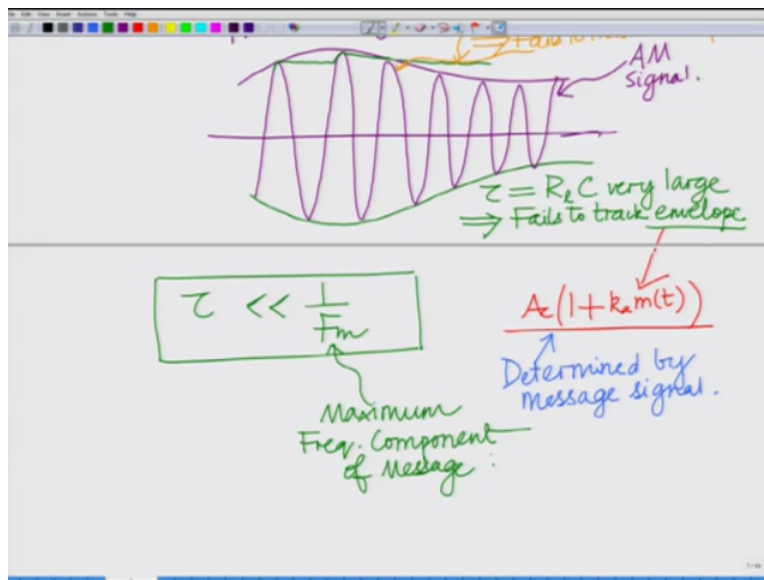 Edit View Insert Actions Tools Help
AM
signal.
τ = RₗC very large
⇒ Fails to track envelope.
τ << 1/Fm
Ac(1+kam(t))
Determined by
Message signal.
Maximum
Freq. Component
of Message :